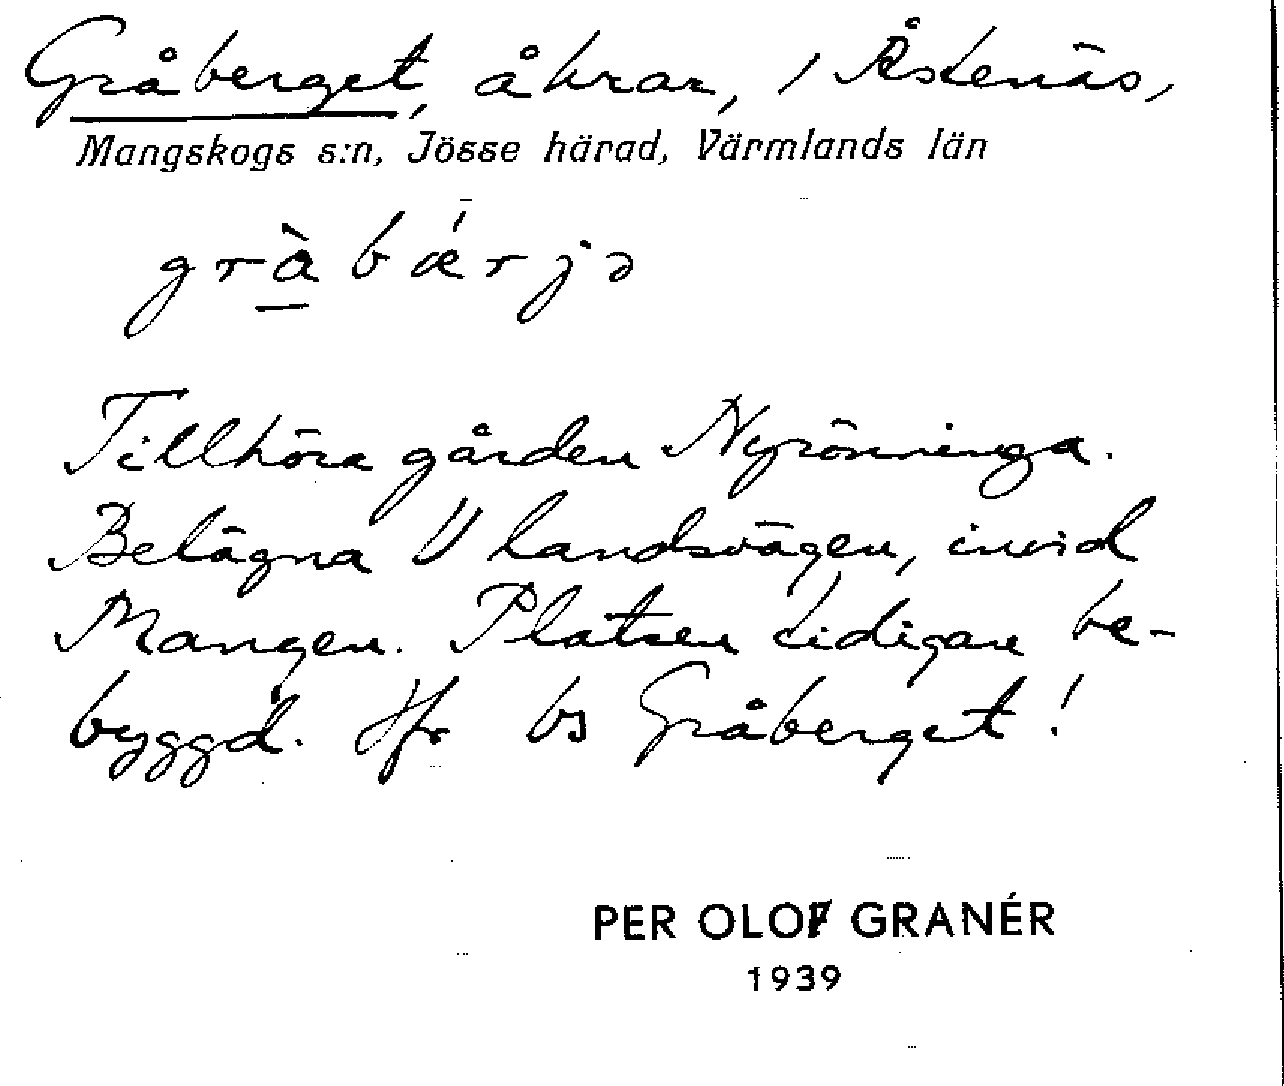 Gråberget, åkrar, i Åstenäs,
Mangskogs s:n, Jösse härad, Värmlands län
grà bǽrjə
Tillhöra gården Nyrönninga.
Belägna V landsvägen, invid
Mangen. Platsen tidigare be-
byggd. Jfr bs Gråberget!
PER OLOF GRANÉR
1939